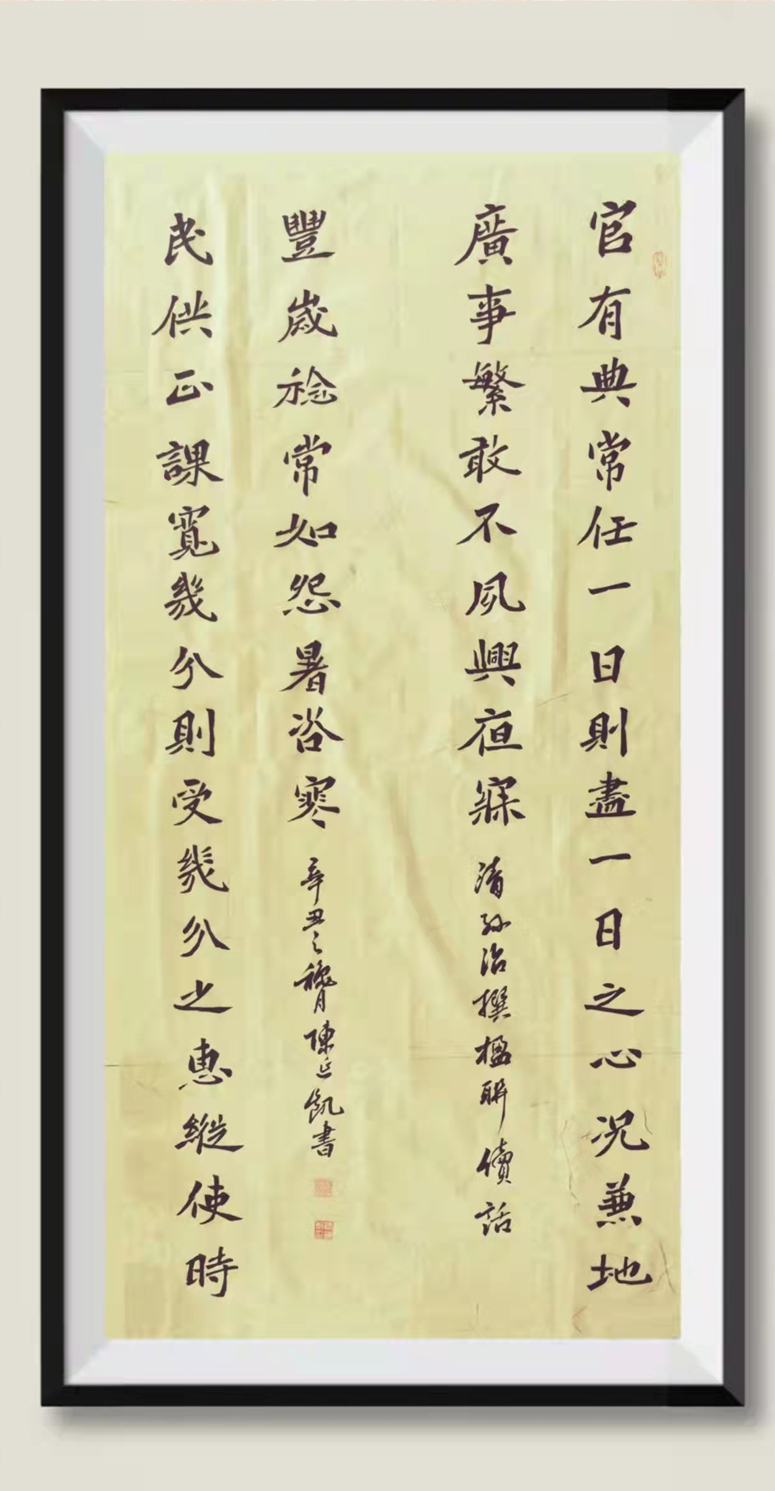 官有典常任一日則盡一日之心況兼地
廣事繁敢不夙興夜寐
清孫治撰楹聯續話
民供正課寬幾分則受幾分之惠縱使時
豐歲稔常如怨暑咨寒
辛丑之月陳延凱書